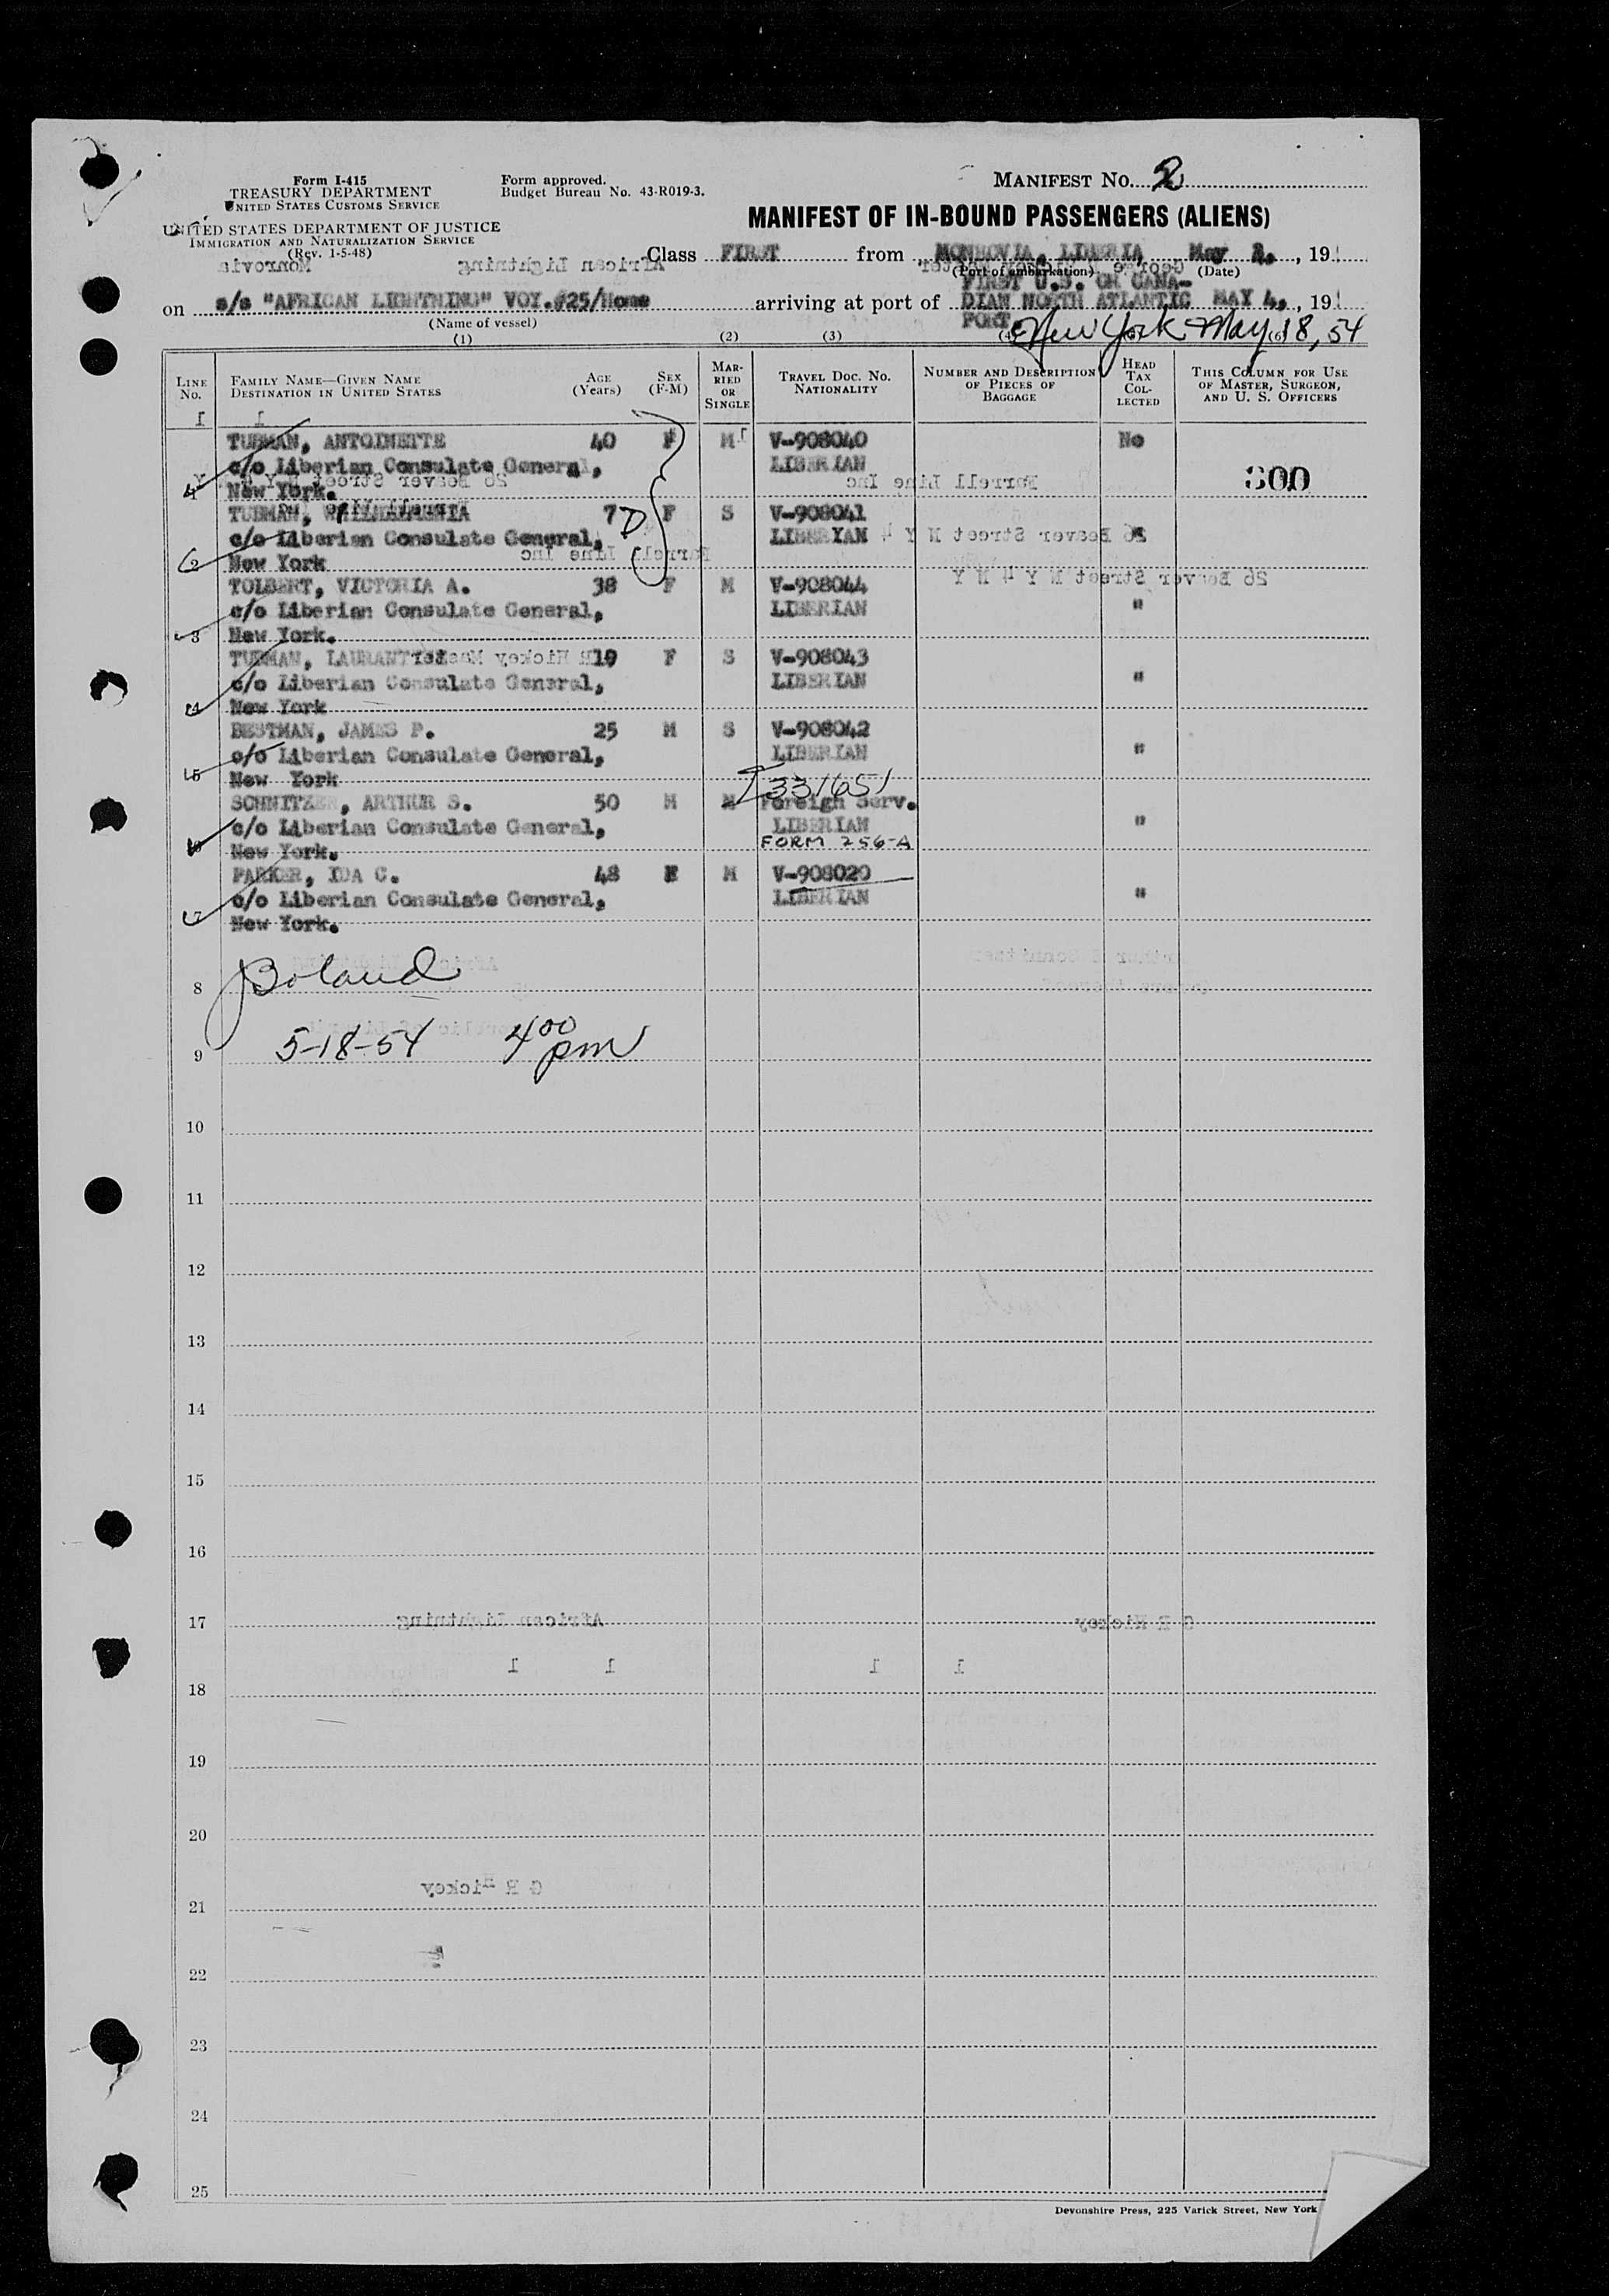 Form I-415
TREASURY DEPARTMENT
UNITED STATES CUSTOMS SERVICE
UNITED STATES DEPARTMENT OF JUSTICE
IMMIGRATION AND NATURALIZATION SERVICE
(Rev. 1-5-48)
Form approved.
Budget Bureau No. 43-R019-3.
MANIFEST NO. 2
MANIFEST OF IN-BOUND PASSENGERS (ALIENS)
Class FIRST from MONROVIA, LIBERIA May 2, , 19
(Port of embarkation) (Date)
African Lightning Monrovia
on s/s "AFRICAN LIGHTNING" VOY.#25/Home arriving at port of FIRST U.S. OR CANA-
DIAN NORTH ATLANTIC MAY 4, , 19
PORT. New York May 18, 54
(Name of vessel)
(1) (2) (3)
LINE NO.
FAMILY NAME—GIVEN NAME
DESTINATION IN UNITED STATES
AGE (Years)
SEX (F-M)
MARRIED OR SINGLE
TRAVEL DOC. NO.
NATIONALITY
NUMBER AND DESCRIPTION OF PIECES OF BAGGAGE
HEAD TAX COLLECTED
THIS COLUMN FOR USE OF MASTER, SURGEON, AND U. S. OFFICERS
1 1
TUBMAN, ANTOINETTE 40 F M V-908040 No
c/o Liberian Consulate General, LIBERIAN
New York. 300
26 Beaver Street N Y 4 N Y
Farrell Line Inc
TUBMAN, WILHELMENIA 7 D F S V-908041
2 c/o Liberian Consulate General, LIBERIAN "
26 Beaver Street N Y 4
New York
Farrell Line Inc
26 Beaver Street N Y 4 N Y
TOLBERT, VICTORIA A. 38 F M V-908044
c/o Liberian Consulate General, LIBERIAN "
3 New York.
TUBMAN, 19 F S V-908043
G R Hickey Master
c/o Liberian Consulate General, LIBERIAN "
4 New York
BESTMAN, JAMES P. 25 M S V-908042
c/o Liberian Consulate General, LIBERIAN "
5 New York
I331651
SCHNITZER, ARTHUR S. 50 M M Foreign Serv.
c/o Liberian Consulate General, LIBERIAN "
6 New York. FORM 256-A
PARKER, IDA C. 48 F M V-908020
c/o Liberian Consulate General, LIBERIAN "
7 New York.
8 Boland
9 5-18-54 4 00 pm
10
11
12
13
14
15
16
17 African Lightning G R Hickey
1 1 1 1
18
19
20
G R Hickey
21
22
23
24
25
Devonshire Press, 225 Varick Street, New York